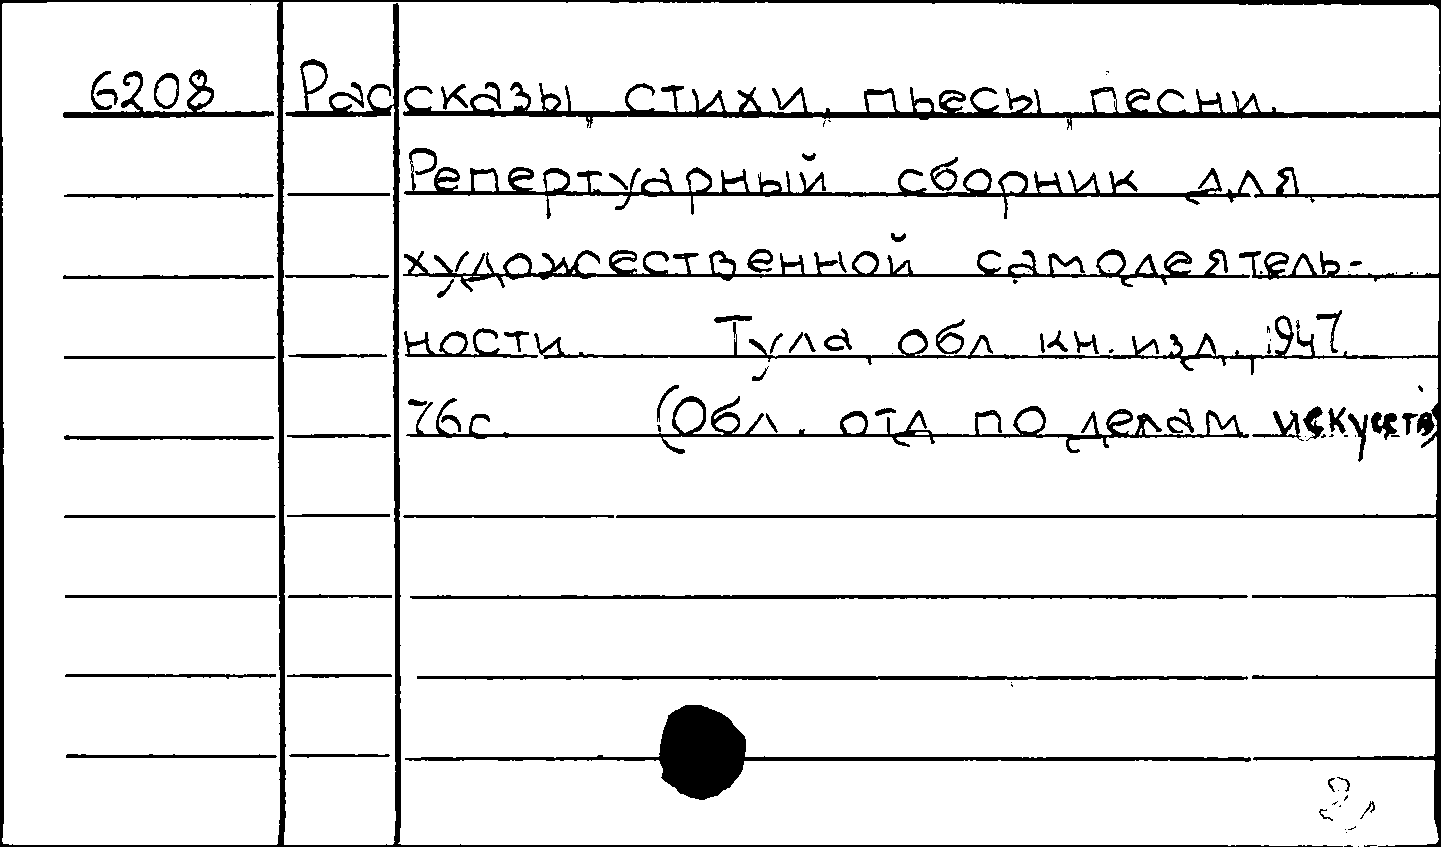 6208 Рассказы, стихи, пьесы, песни.
Репертуарный сборник для
художественной самодеятель-
ности. Тула, обл. кн. изд., 1947.
76с. (Обл. отд. по делам искусств)